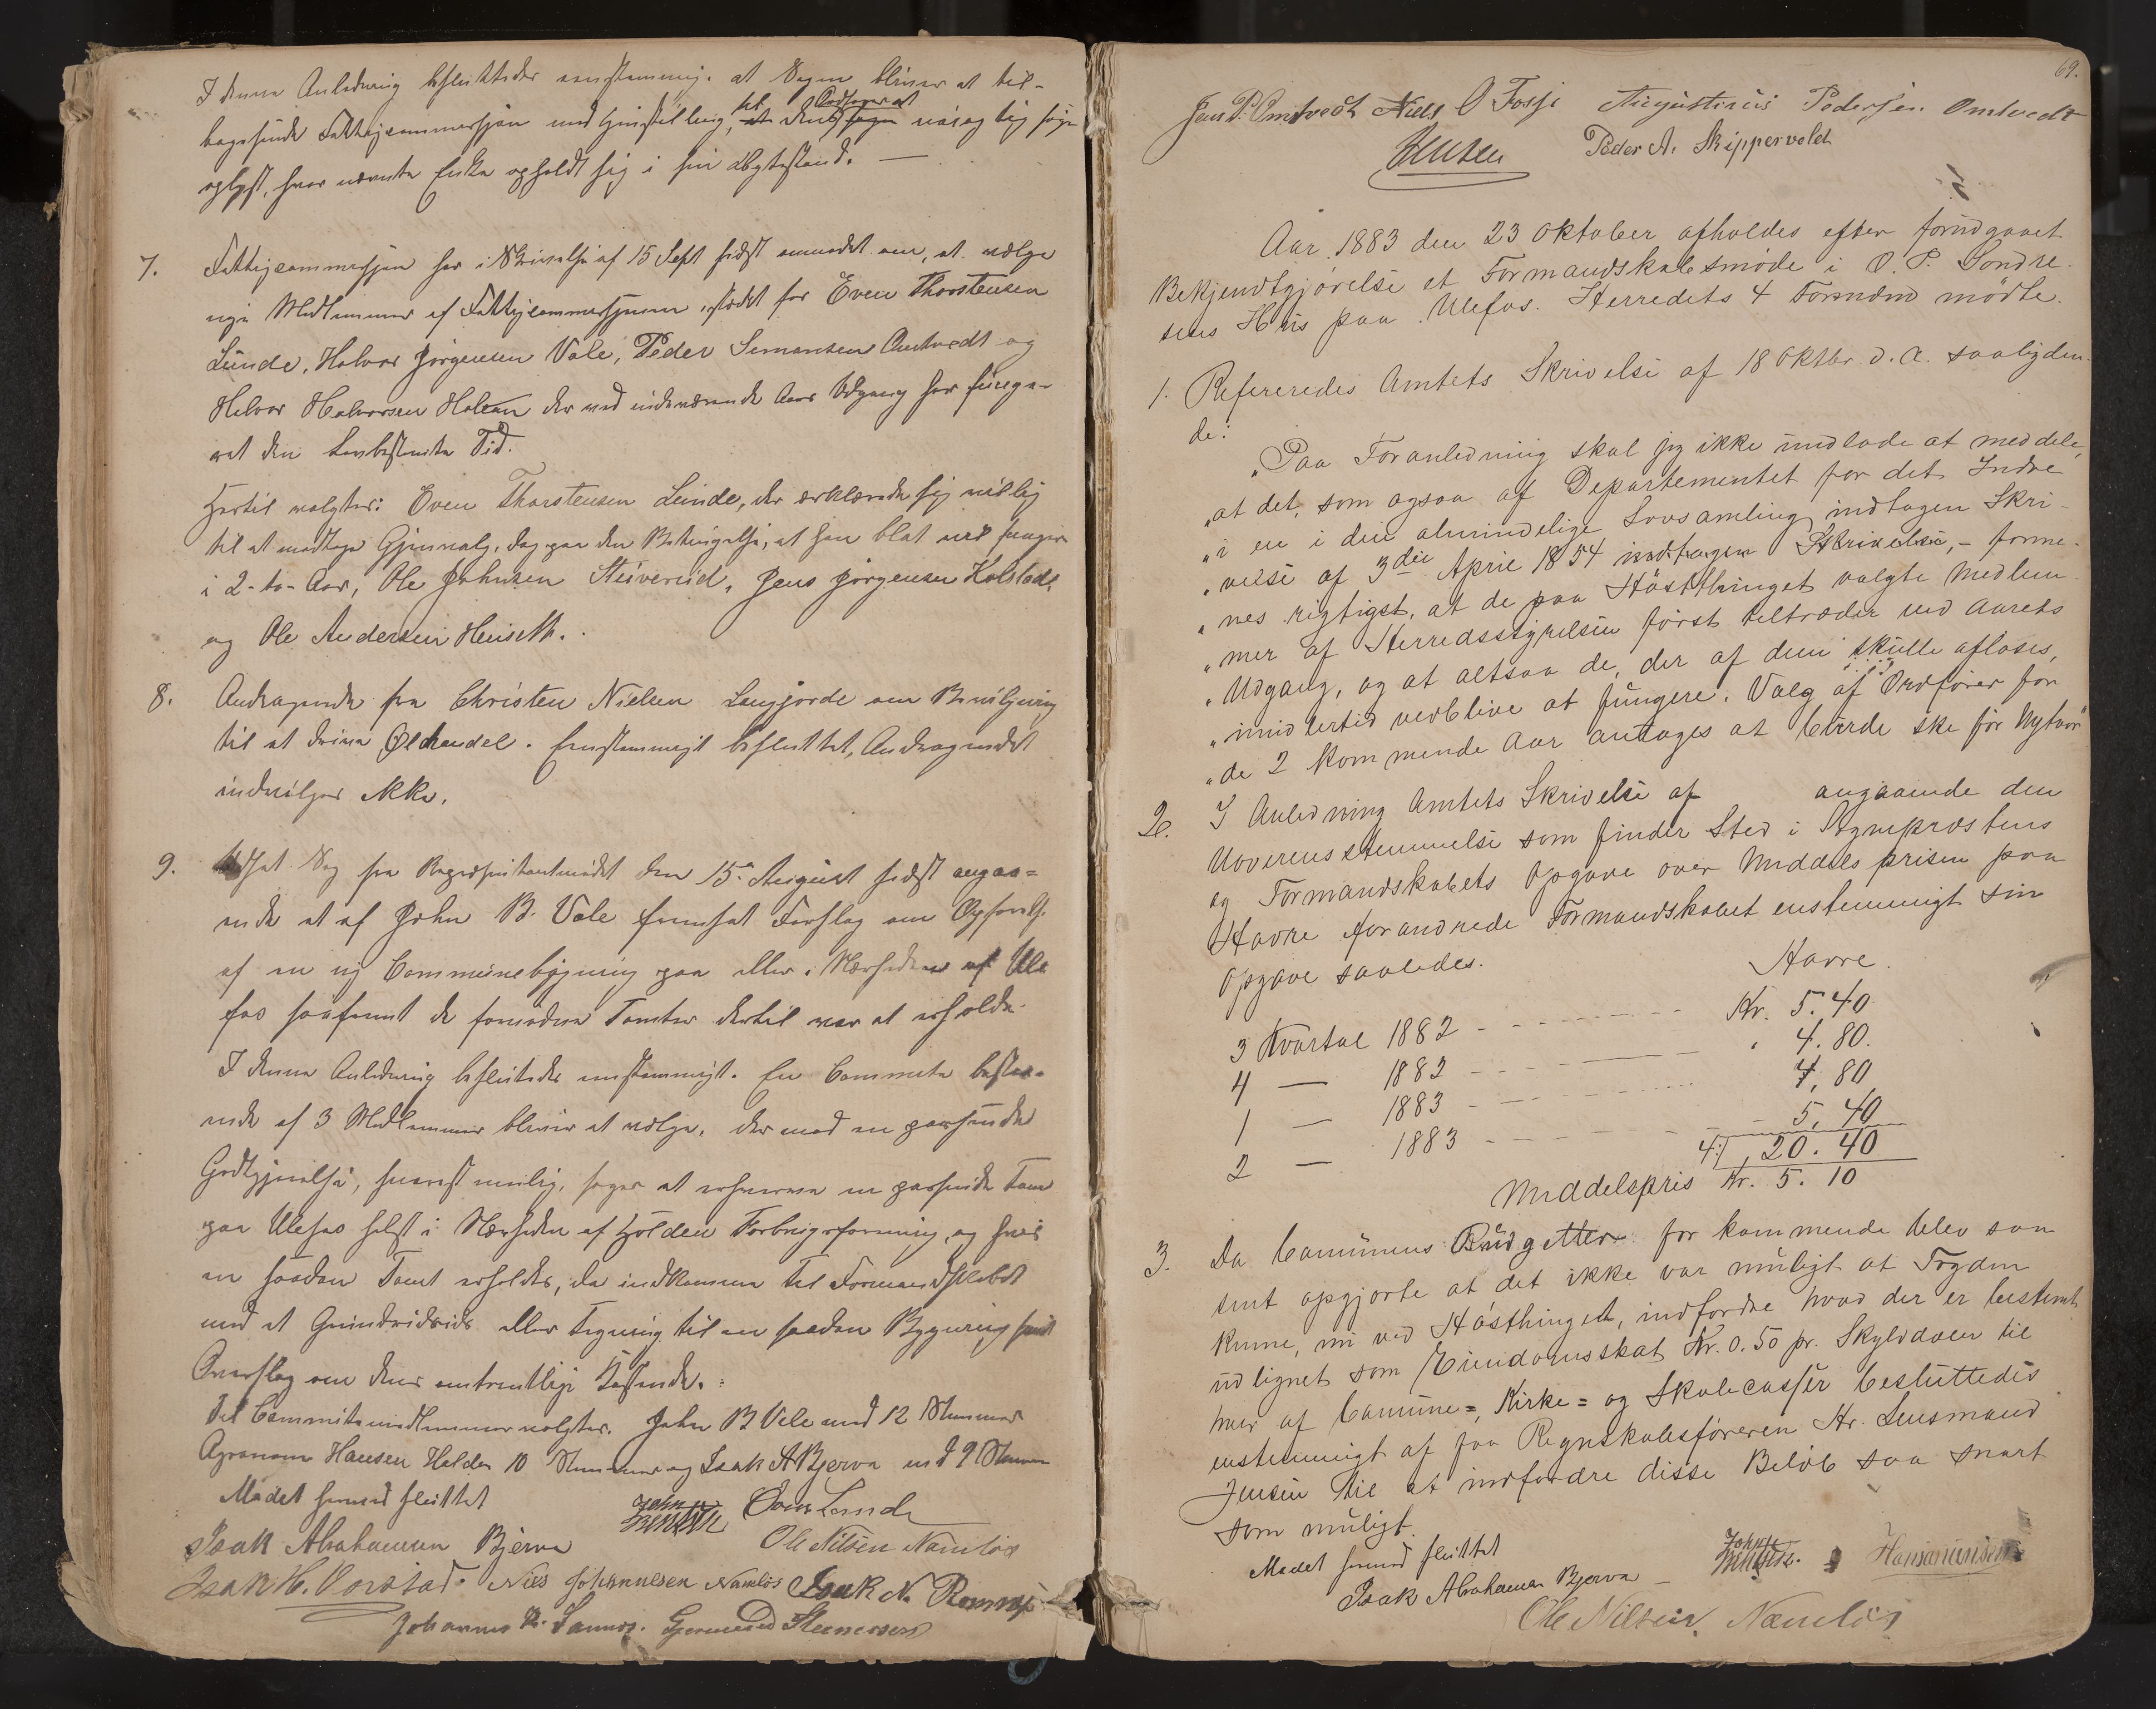 I denne Anledning besluttedes enstemmig. at Sagen bliver at til-
bagesende Fattigcommissjon med Henstilling,
oplyst, hvor nævnte Enke opholdt sig i sin Ægtestand. —
7. Fattigcommissjon har i Skrivelse af 15 Sept sidst anmodet om, at vælge
nye Medlemmer af Fattigcommissjonen istedet for Even Thorstensen
Lunde, Halvor Jørgensen Vale, Peder Simonsen Omtvedt og
Halvor Halvorsen Haltan der ved indeværende Aars Udgang har funge-
ret den lovbestemte Tid.
Hertil valgtes: Even Thorstensen Lunde, der erklærede sig villig
til at modtage Gjenvalg, dog paa den Betingelse, at han blot vil fungere
i 2-to-Aar, Ole Johnsen Stuverud, Jens Jørgensen Kolstad,
og Ole Andersen Heiseth.
8. Andragende fra Christen Nielsen Langjorde om Bevilgning
til at drive Ølhandel. Enstemmigt besluttet, Andragendet
indvilges ikke.
9. Udsat Sag fra Repræsentantmødet den 15de August sidst angaa=
ende et af John B. Vale fremsat Forslag om Opførelse
af en ny Communebygning paa eller i Nærheden af Ule
fos saafremt de fornødne Tomter dertil var at erholde.
I denne Anledning besluttedes enstemmigt. En Commite bestaa-
ende af 3 Medlemmer bliver at vælge, der mod en passende
Godtgjørelse, snarest mulig, søger at erhverve en passende Tomt
paa Ulefos helst i Nærheden af Holden Forbrugsforening, og hvis
en saadan Tomt erholdes, da indkomme til Formandskabet
med et Grundrids eller Tegning til en saadan Bygning samt
Overslag om dens omtrentlige Kostende.
Til Commitemedlemmer valgtes. John B Vale med 12 Stemmer
Agronom Hansen Holden 10 Stemmer og Isak A Bjerva med 9 Stemmer
Mødet hermed sluttet
John
Bentsen Even Lunde
Isak Abrahamsen Bjerva Ole Nilsen Namløs
Isak H. Vorstad. Nils Johannesen Namløs Isak N. Romnes
Johannes Sannes. Gjermund Steenessen
69.
Jens P. Omtvedt Niels O Fosse Augustinus Pedersen Omtvedt
Peder A. Skippervold
Aar 1883 den 23 Oktober afholdes efter forudgaaet
Bekjendtgjørelse et Formandskabsmøde i O. P. Søndre-
sens Hus paa Ulefos. Herredets 4 Formænd mødte.
1. Refereredes Amtets Skrivelse af 18 Oktbr d. A. saalyden-
de:
„Paa Foranledning skal jeg ikke undlade at meddele,
„at det, som ogsaa af Departementet for det Indre
„i en i den almindelige Lovsamling indtagen Skri-
„velse af 3die April 1854 indtagen Skrivelse, – forme-
„nes rigtigst, at de paa Høstthinget valgte Medlem-
„mer af Herredsstyrelsen først tiltræder ved Aarets
„Udgang, og at altsaa de, der af dem skulle afløses,
„imidlertid verblive at fungere. Valg af Ordfører for
„de 2 kommende Aar antages at burde ske før Nytaar"
2. I Anledning Amtets Skrivelse af angaaende den
Uoverensstemmelse som finder Sted i Sogneprestens
og Formandskabets Opgave over Middelsprisen paa
Havre forandrede Formandskabet enstemmigt sin
Opgave saaledes.
Havre.
3 Kvartal 1882 - - - - - - - - Kr. 5.40
4 — 1882 - - - - - - - „ 4.80.
1 — 1883 - - - - - - - 4,80
2 — 1883 - - - - - - - 5,40
4:| 20.40
Middelspris Kr. 5.10
3. Da Comunens Budgetter for kommende blev saa
sent opgjorte at det ikke var muligt at Fogden
kunne, nu ved Høstthinget, indfordre hvad der er bestemt
udlignet som Eiendomsskat Kr. 0.50 pr. Skylddaler til
hver af Comune=, Kirke= og Skolecasser besluttedes
enstemmigt af faa Regnskabsføreren Hr. Lensmand
Jensen til at indfordre disse Beløb saa snart
som muligt.
Mødet hermed sluttet
Isak Abrahamsen Bjerva
John
Bentsen. Hans Hansen
Ole Nilsen Namløs